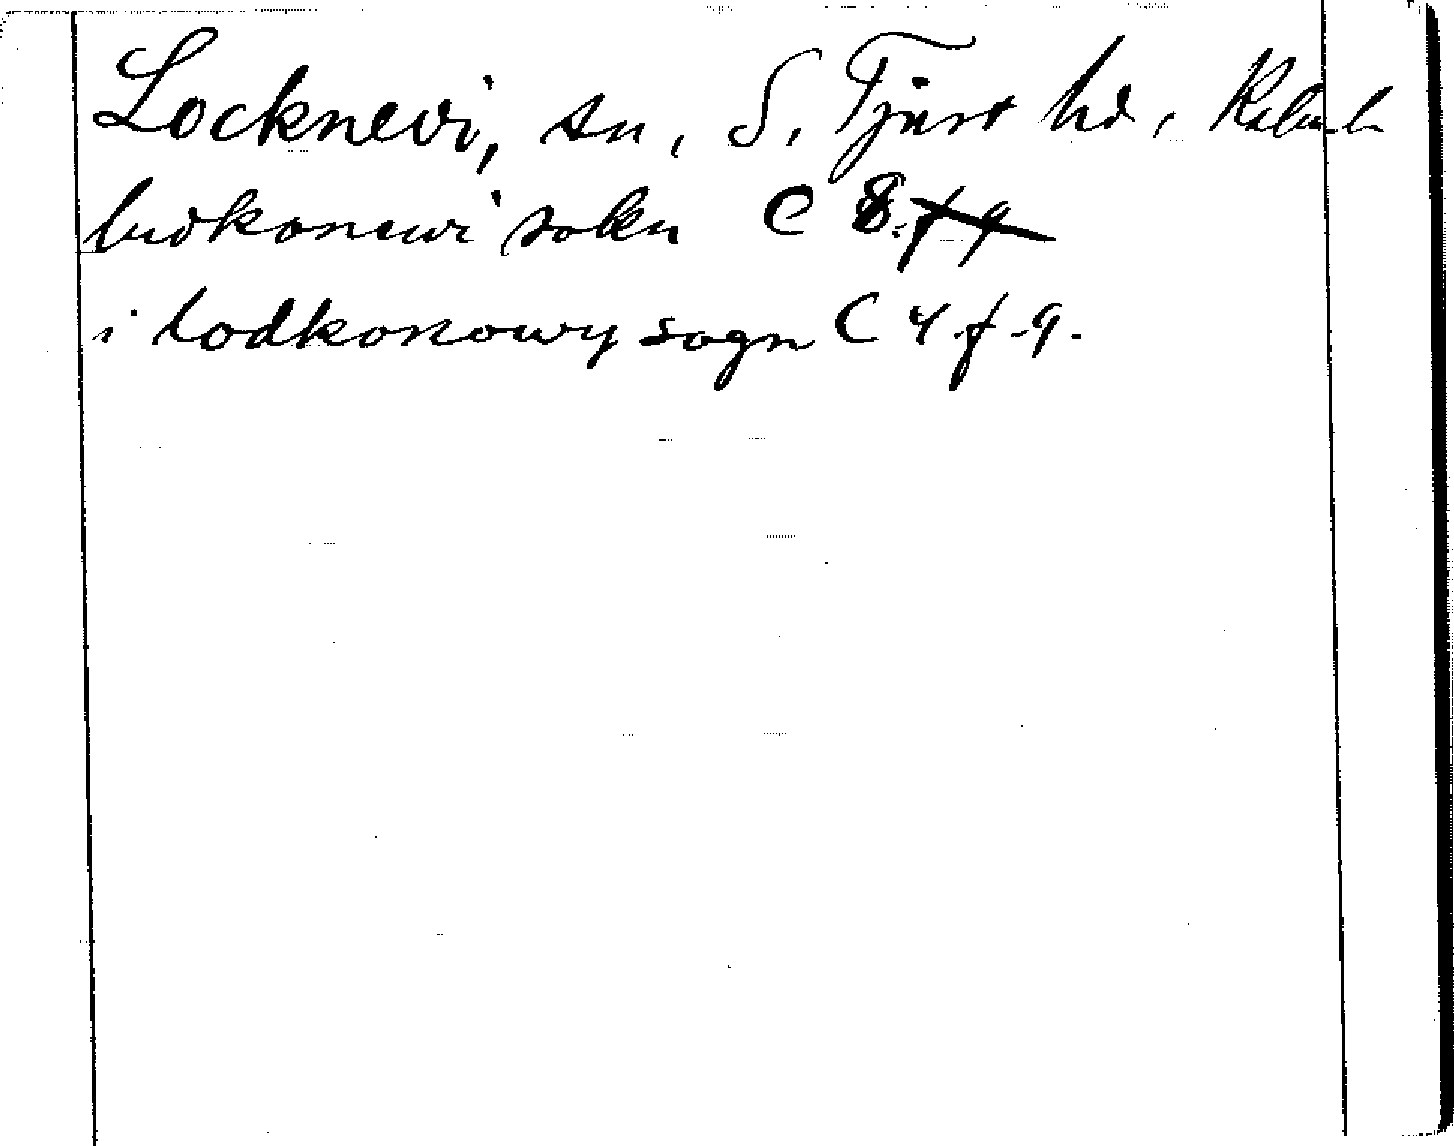 Locknevi, sn, S. Tjust hd, Kalmar l.
ludkonewi sokn C 8. f 9
i lodkonowy sogn C 4 f 9.